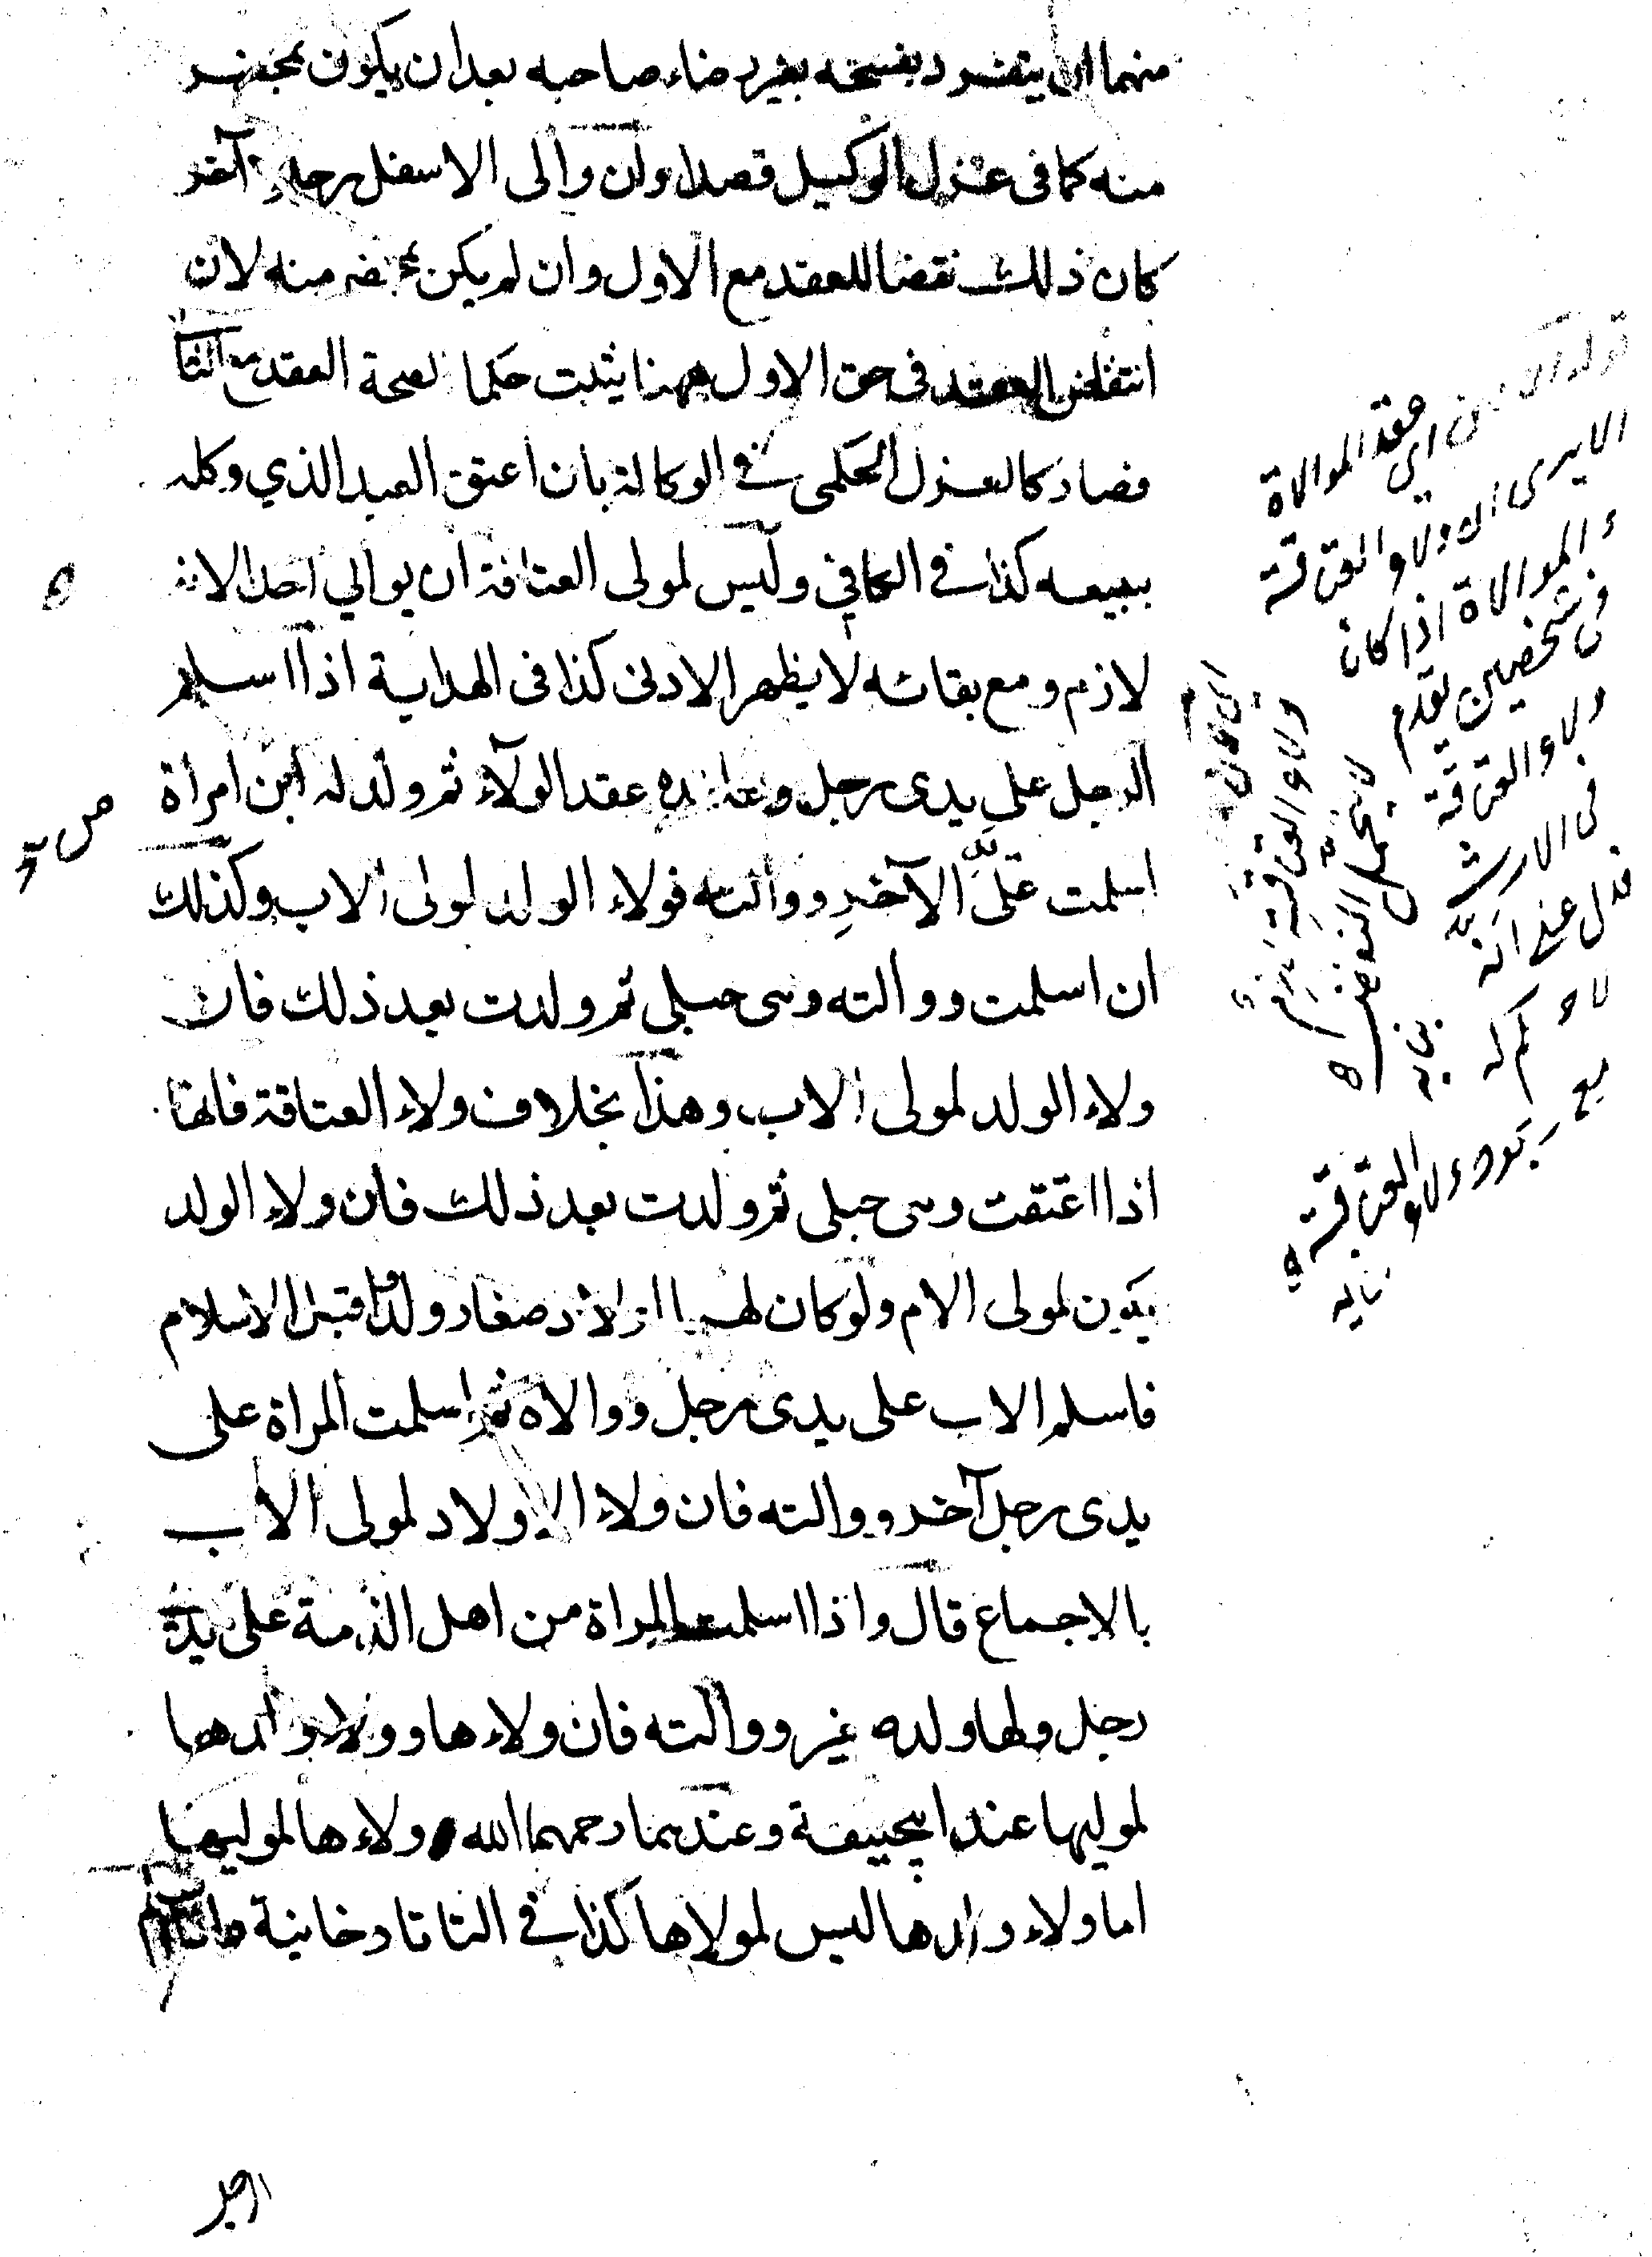 منهما ان ينفرد بفسخه بغير رضاء صاحبه بعد ان يكون بمحضر
منه كما فى عزل الوكيل قصدا وان والى الاسفل رجلا آخر
كان ذلك نقضا للعقد مع الاول وان لم يكن بمحضر منه لان
انتقاض العقد فى حق الاول ههنا يثبت حكما لصحة العقد مع الثا
فصار كالعزل الحكمى فى الوكالة بان اعتق العبد الذي وكله
ببيعه كذا فى الكافي وليس لمولى العتاقة ان يوالي احدا لانه
لازم ومع بقائه لا يظهر الادنى كذا فى الهداية اذا اسلم
الرجل على يدى رجل وعاقده عقد الولآء ثم ولد له ابن امرأة
اسلمت على يد الآخر ووالته فولاء الولد لمولى الاب وكذلك
ان اسلمت ووالته وهى حبلى ثم ولدت بعد ذلك فان
ولاء الولد لمولى الاب وهذا بخلاف ولاء العتاقة فانها
اذا اعتقت وهى حبلى ثم ولدت بعد ذلك فان ولاء الولد
يكون لمولى الام ولو كان لهما اولاد صغار ولدوا قبل الاسلام
فاسلم الاب على يدى رجل ووالاه ثم اسلمت المراة على
يدى رجل آخر ووالته فان ولاء الاولاد لمولى الاب
بالاجماع قال واذا اسلمت المراة من اهل الذمة على يد
رجل ولها ولد صغير ووالته فان ولاءها وولاء ولدها
لموليها عند ابيحنيفة وعندهما رحمهما الله ولاءها لموليها
اما ولاء ولدها ليس لمولاها كذا فى التاتارخانية
عقد الموالاة
والموالاة اذا كان
فى شخصين يقدم
ولاء العتاقة
فى الارث
فدل على انه
لا يحتمل النقض
ولاء العتاقة